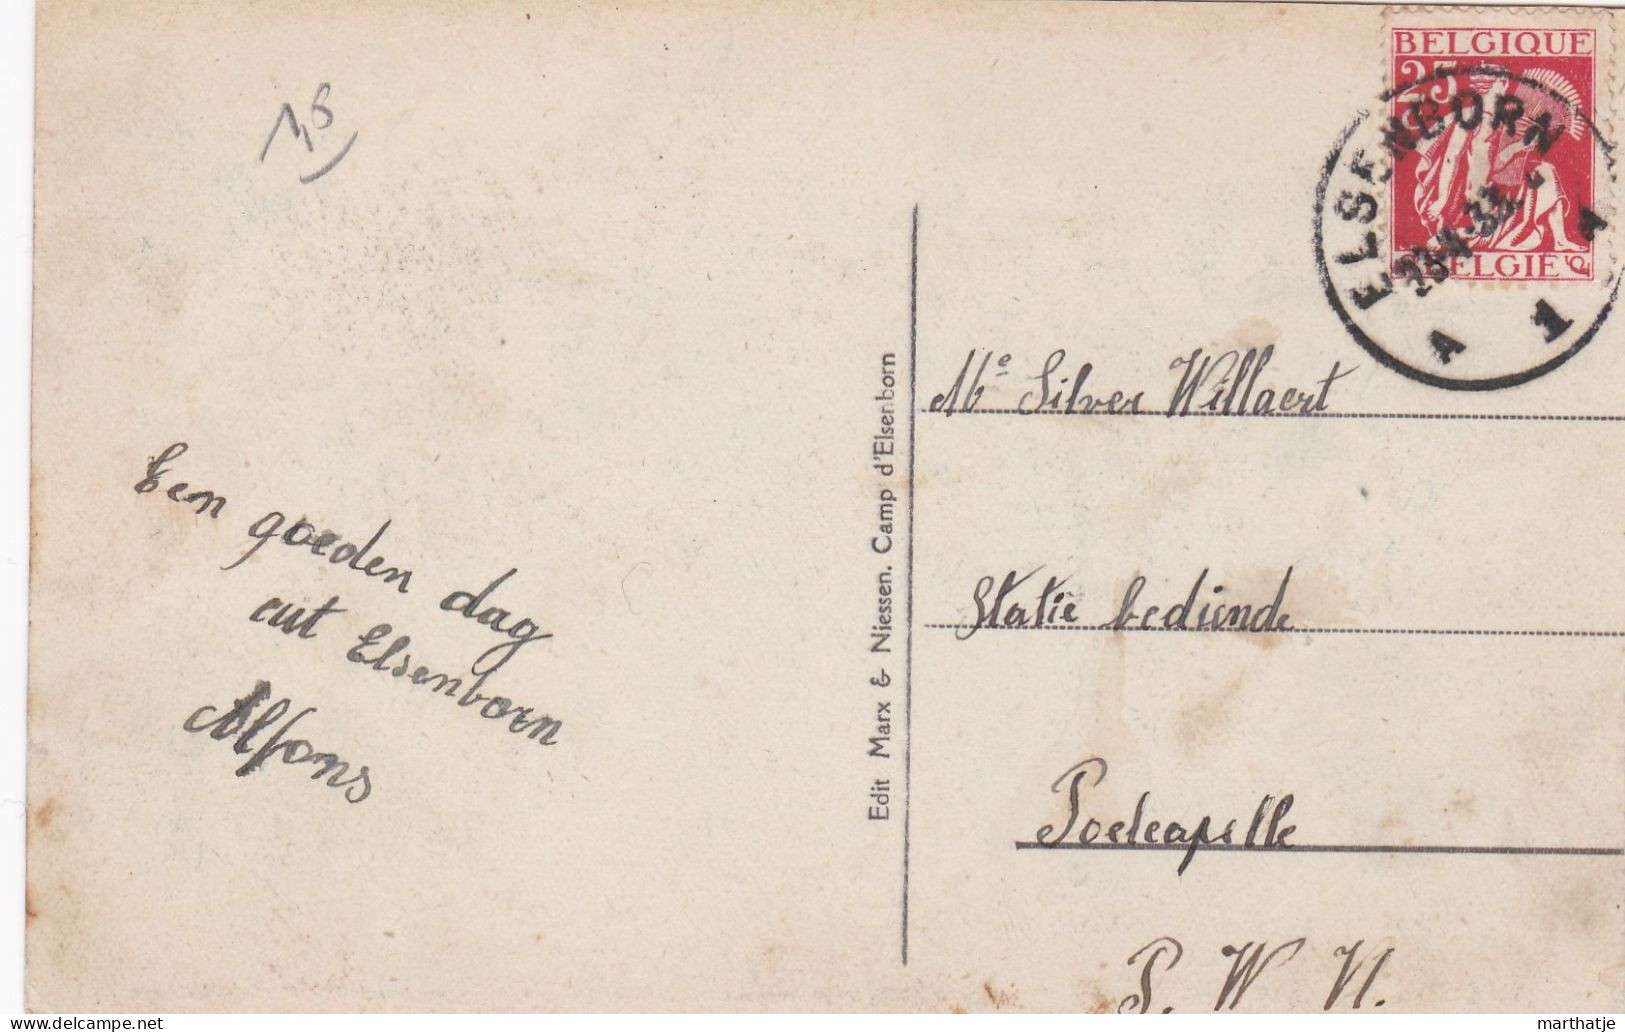 1,5
BELGIQUE
25
c
BELGIE
ELSENBORN
A 1 A
Een goeden dag
uit Elsenborn
Alfons
Edit Marx & Niessen. Camp d'Elsenborn
Me Silver Willaert
Statie bediende
Poelcapelle
P. W Vl.
delcampe.net
marthatje